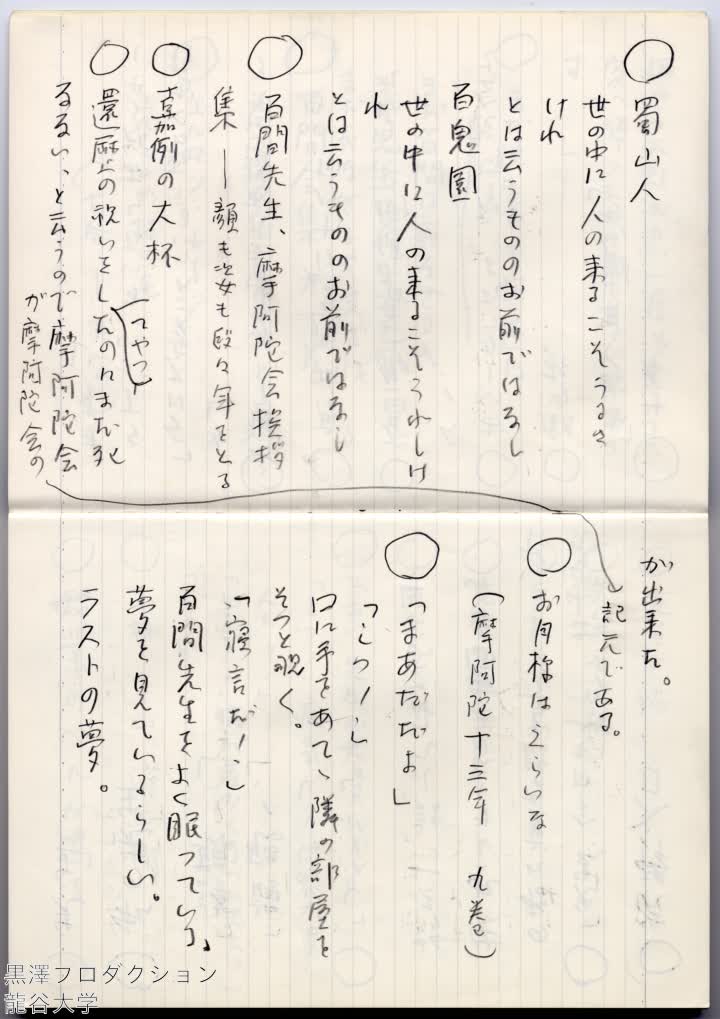 ○蜀山人
世の中に人の来るこそうるさ
けれ
とは云うもののお前ではなし
百鬼園
世の中に人の来るこそうれしけ
れ
とは云うもののお前ではなし
○百間先生、摩阿陀会挨拶
集―顔も姿も段々年をとる
○嘉例の大杯
○還暦の祝いをしたのにまだ死
(てやつ
るない、と云うので摩阿陀会
が摩阿陀会の
が出来た。
記元である。
○お月様はえらいな
(摩阿陀十三年 九巻)
○「まあだだよ」
「しっ!」
口に手をあてゝ隣の部屋を
そっと覗く。
「寝言だ!」
百間先生をよく眠っている。
夢を見ているらしい。
ラストの夢。
黒澤プロダクション
龍谷大学